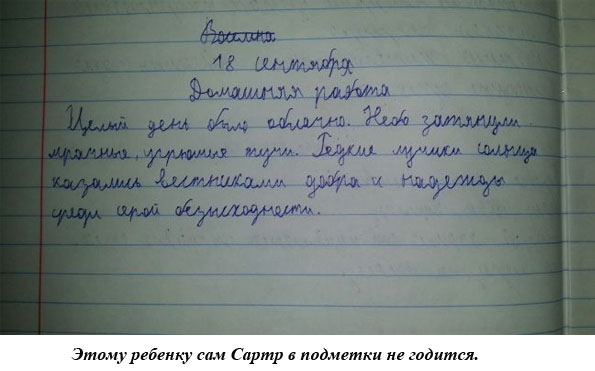 18 сентября
Домашняя работа
Целый день было облачно. Небо затянули
мрачные, угрюмые тучи. Редкие лучики солнца
казались вестниками добра и надежды
среди серой безысходности.
Этому ребенку сам Сартр в подметки не годится.